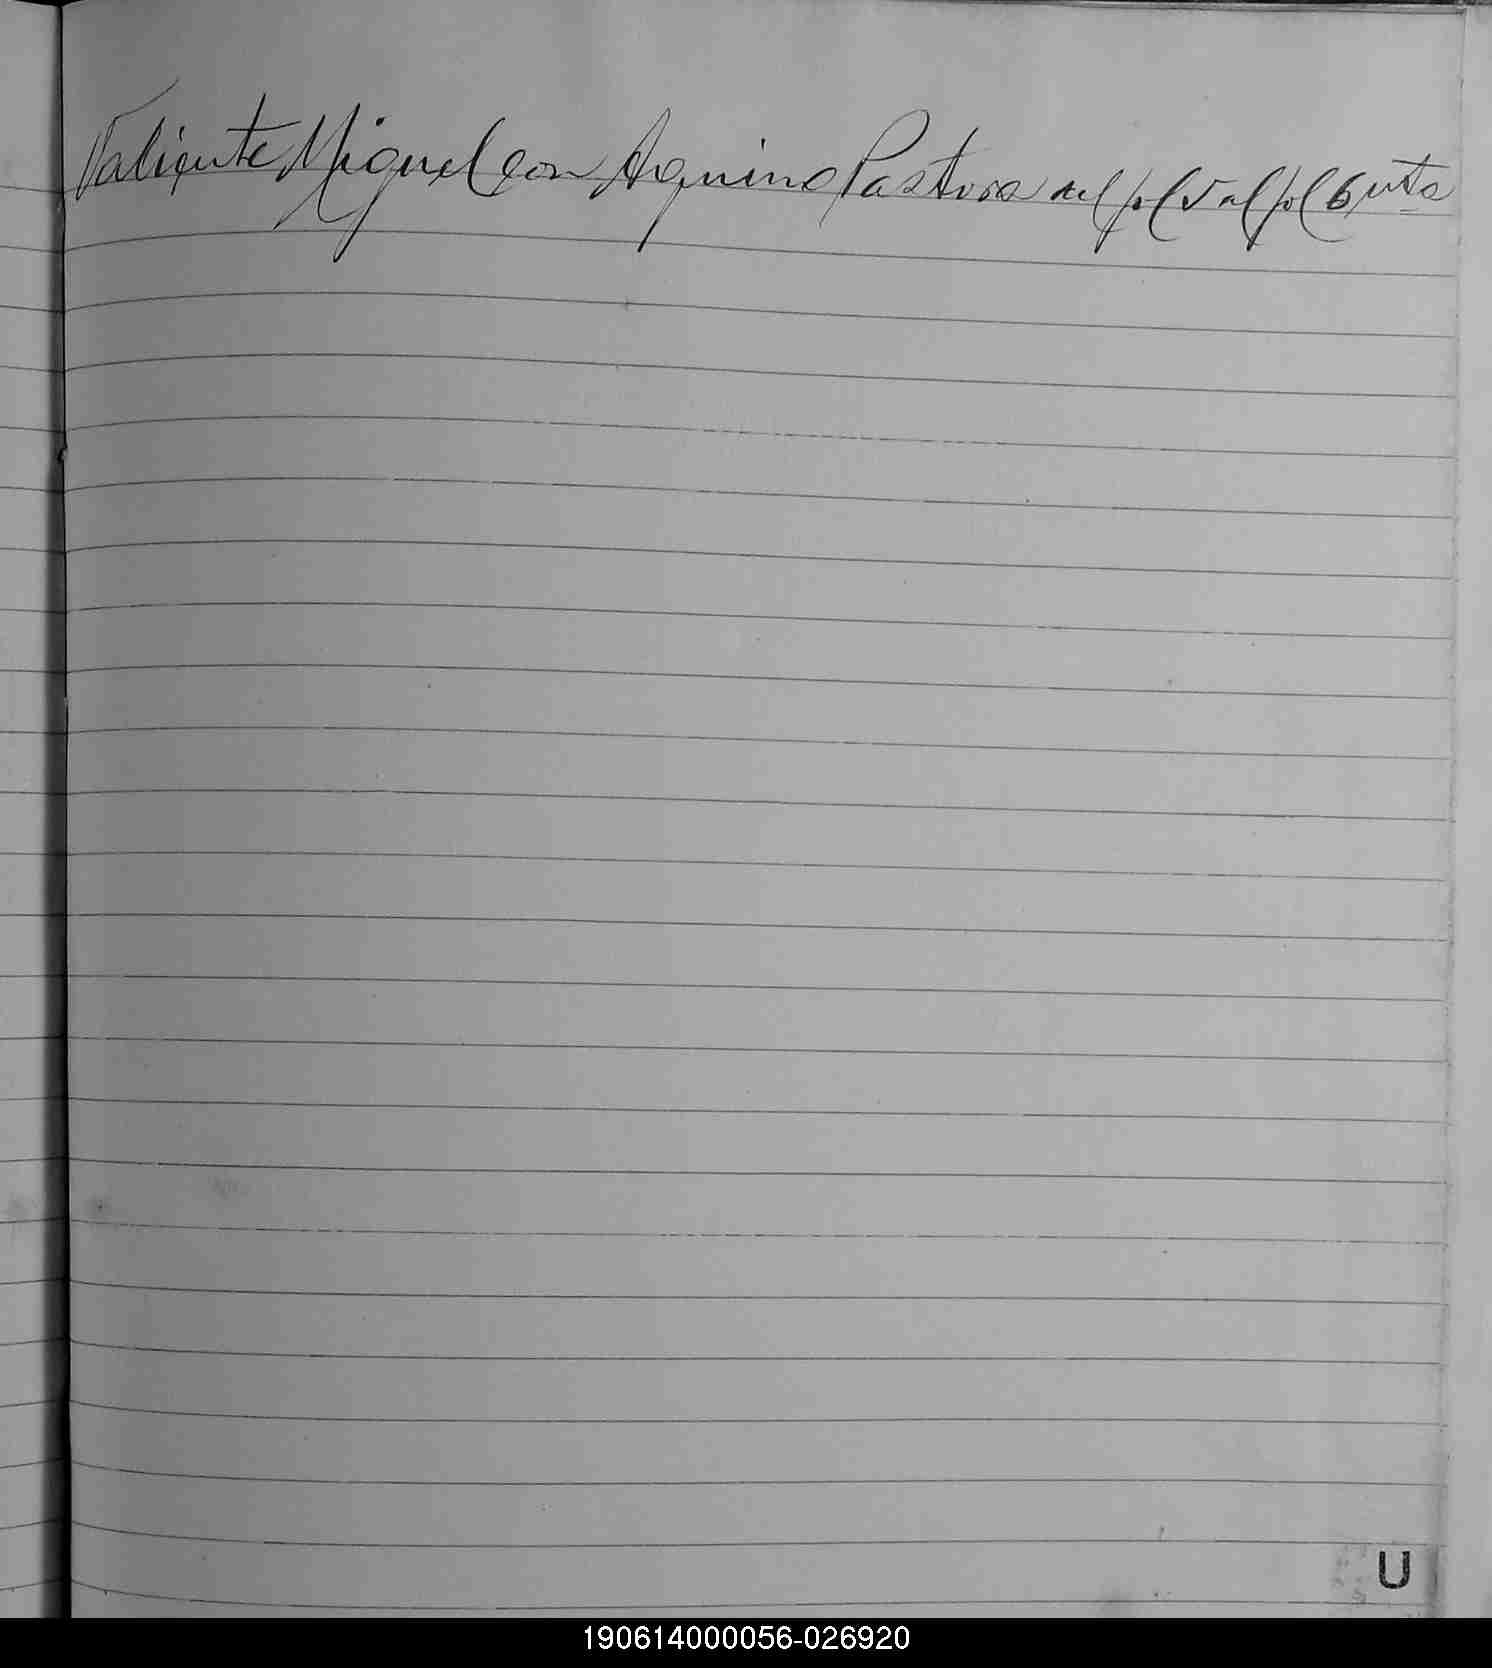 Valiente Miguel con Aquino Pastora del fol val fol 6 vta
U
190614000056-026920